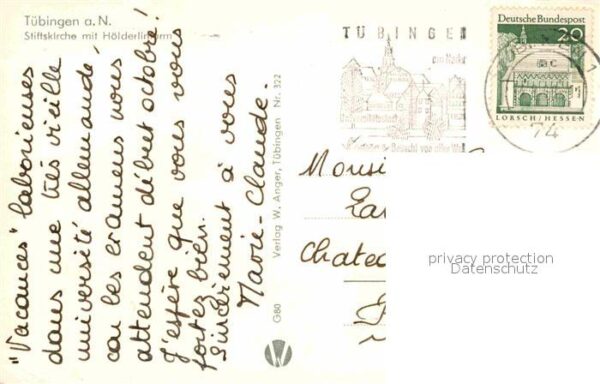 Tübingen a. N.
Stiftskirche mit Hölderlinturm
"Vacances" laborieuses
dans une très vieille
université allemande,
car les examens nous
attendent début octobre!
J'espère que vous vous
portez bien.
Sincèrement à vous
Marie-Claude.
G80 Verlag W. Anger, Tübingen Nr. 322
TÜBINGEN
am Neckar
Universitätsstadt
Deutsche Bundespost
20
LORSCH/HESSEN
74
Monsie
Chatea
privacy protection
Datenschutz